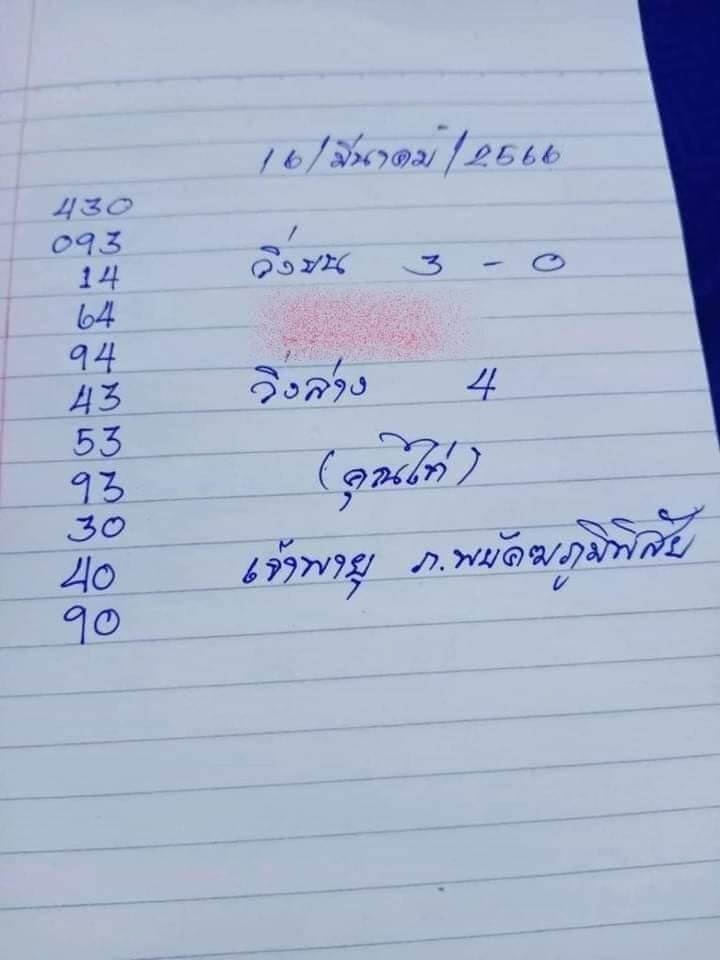 16/มีนาคม/2566
430
093
14
64
94
43
53
93
30
40
90
วิ่งบน 3 - 0
วิ่งล่าง 4
เจ้าพายุ ภ.พยัคฆภูมิพิสัย